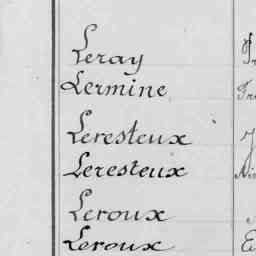 Leray
Lermine
Leresteux
Leresteux
Leroux
Leroux